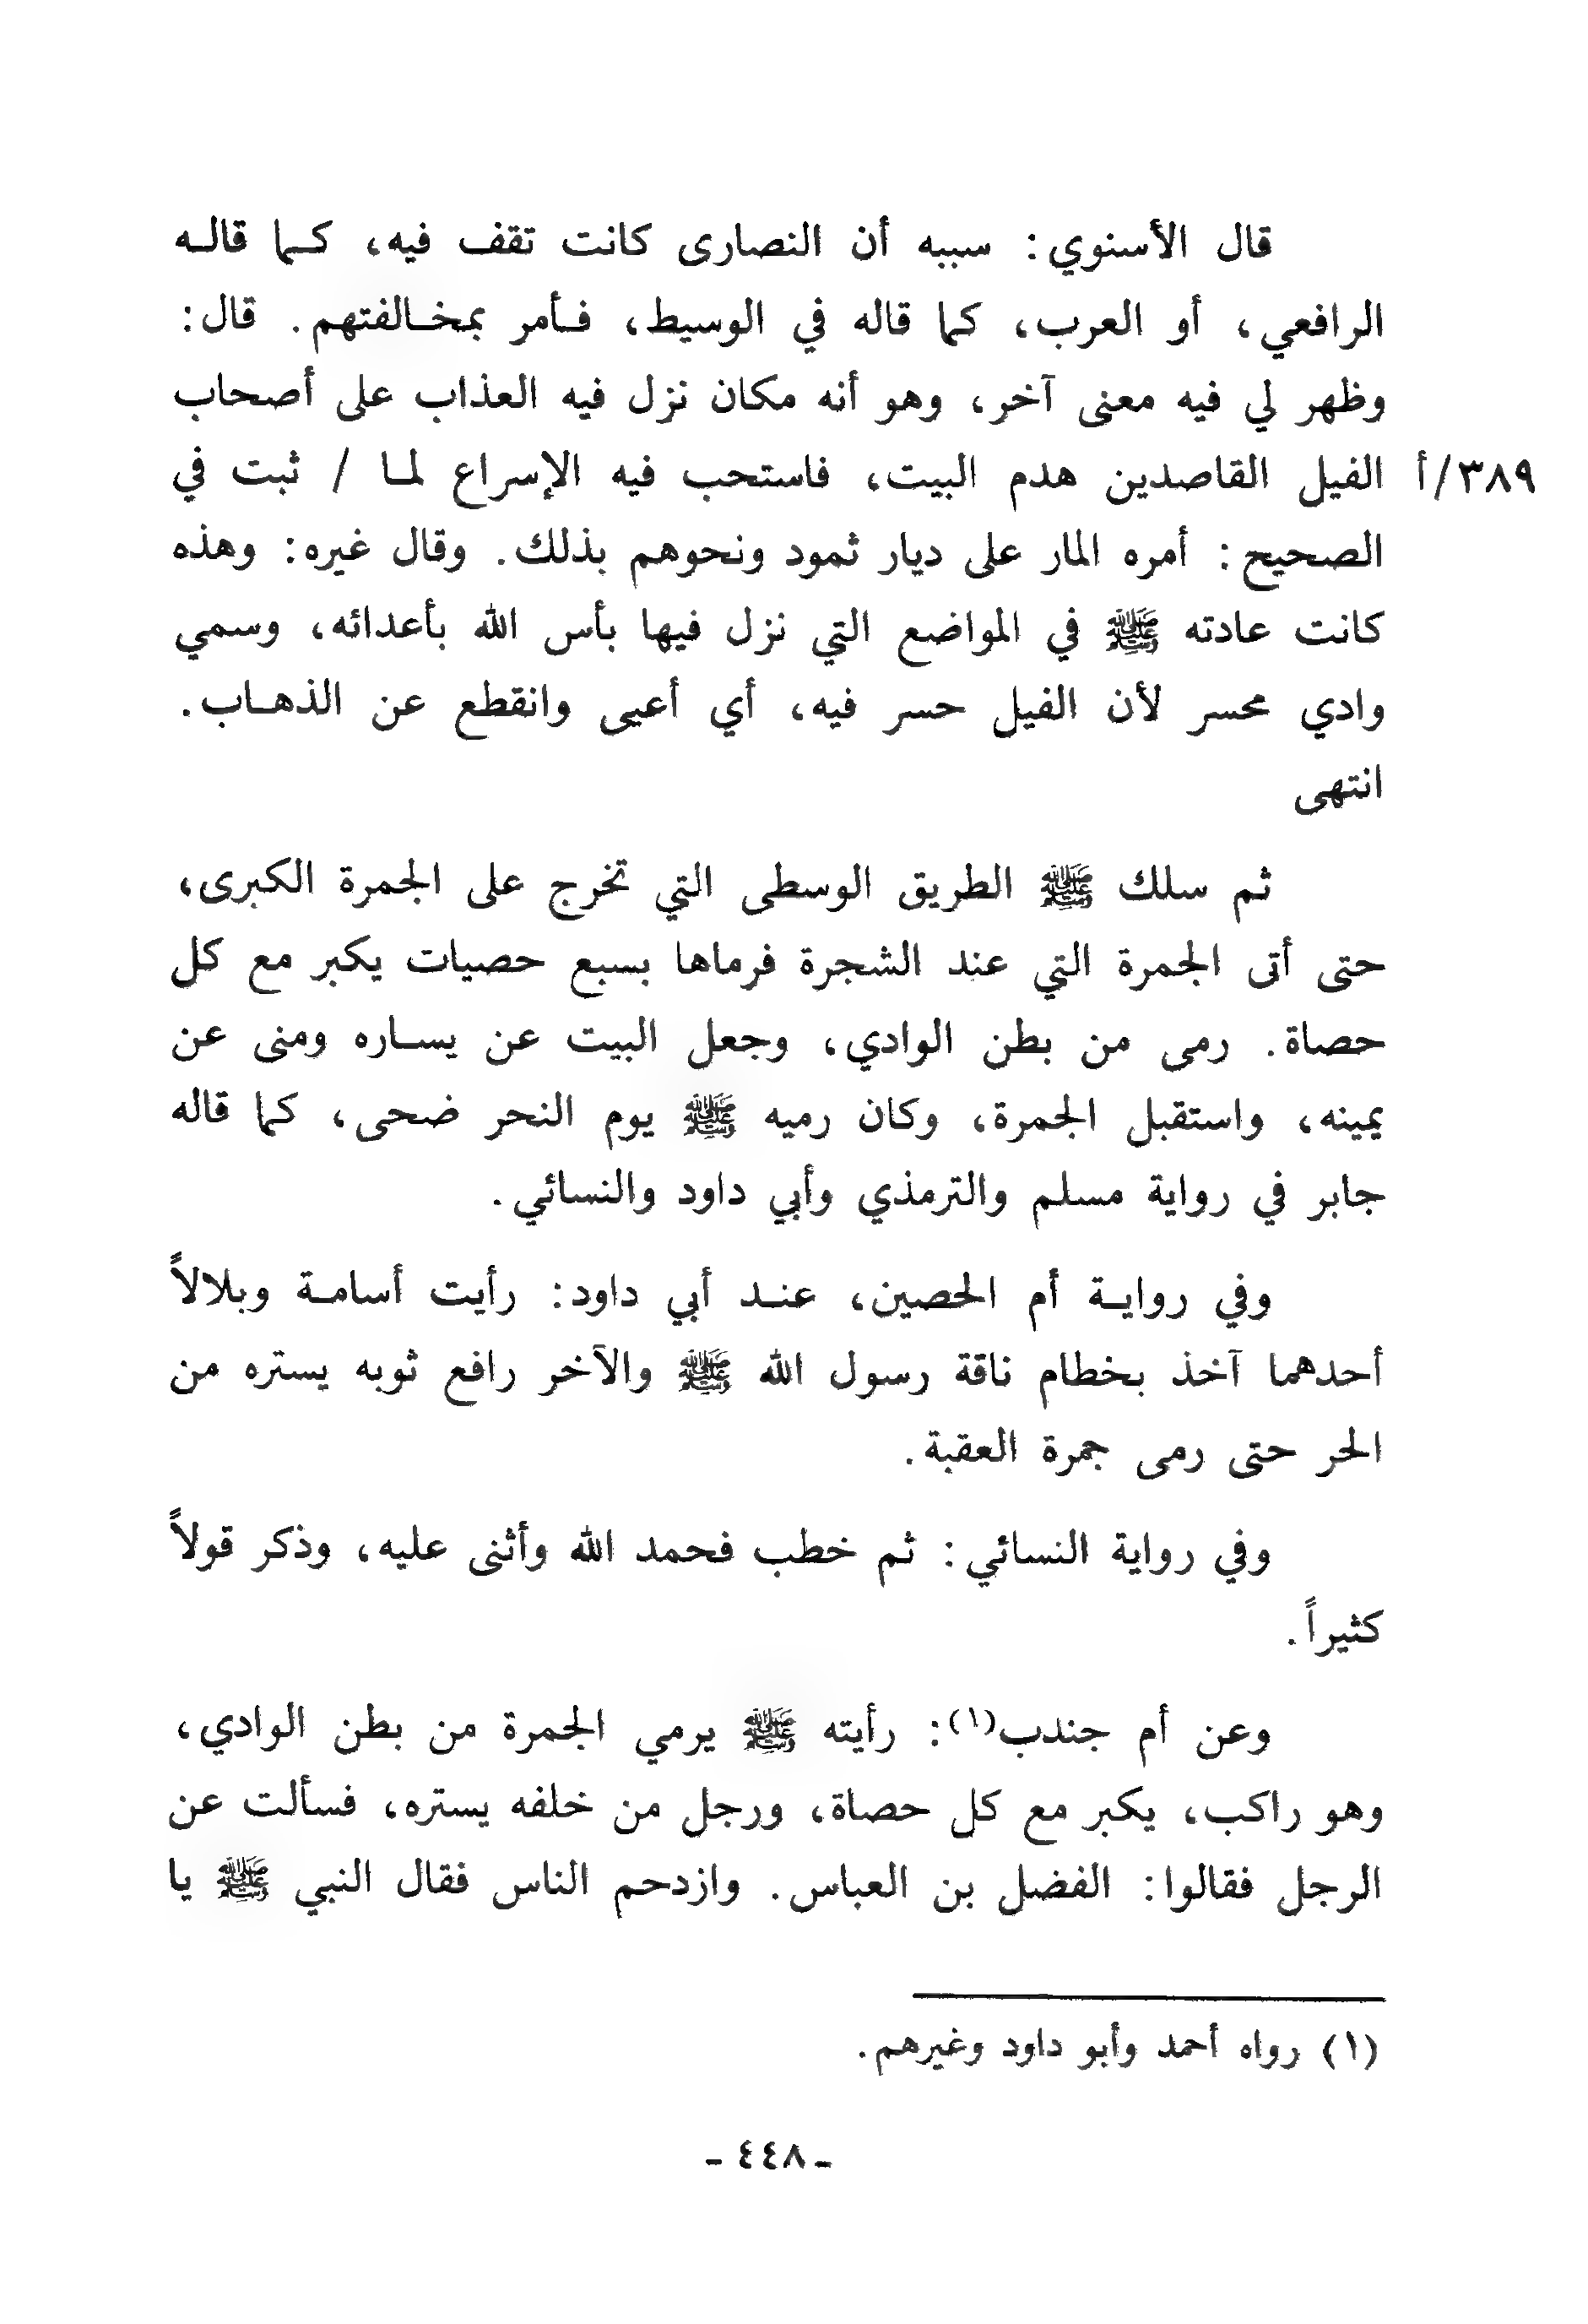 قال الأسنوي: سببه أن النصارى كانت تقف فيه، كما قاله
الرافعي، أو العرب، كما قاله في الوسيط، فأمر بمخالفتهم. قال:
وظهر لي فيه معنى آخر، وهو أنه مكان نزل فيه العذاب على أصحاب
٣٨٩/أ الفيل القاصدين هدم البيت، فاستحب فيه الإسراع لما / ثبت في
الصحيح: أمره المار على ديار ثمود ونحوهم بذلك. وقال غيره: وهذه
كانت عادته ﷺ في المواضع التي نزل فيها بأس الله بأعدائه، وسمي
وادي محسر لأن الفيل حسر فيه، أي أعيى وانقطع عن الذهاب.
انتهى
ثم سلك ﷺ الطريق الوسطى التي تخرج على الجمرة الكبرى،
حتى أتى الجمرة التي عند الشجرة فرماها بسبع حصيات يكبر مع كل
حصاة. رمى من بطن الوادي، وجعل البيت عن يساره ومنى عن
يمينه، واستقبل الجمرة، وكان رميه ﷺ يوم النحر ضحى، كما قاله
جابر في رواية مسلم والترمذي وأبي داود والنسائي.
وفي رواية أم الحصين، عند أبي داود: رأيت أسامة وبلالاً
أحدهما آخذ بخطام ناقة رسول الله ﷺ والآخر رافع ثوبه يستره من
الحر حتى رمى جمرة العقبة.
وفي رواية النسائي: ثم خطب فحمد الله وأثنى عليه، وذكر قولاً
كثيراً.
وعن أم جندب(١): رأيته ﷺ يرمي الجمرة من بطن الوادي،
وهو راكب، يكبر مع كل حصاة، ورجل من خلفه يستره، فسألت عن
الرجل فقالوا: الفضل بن العباس. وازدحم الناس فقال النبي ﷺ يا
(١) رواه أحمد وأبو داود وغيرهم.
- ٤٤٨ -